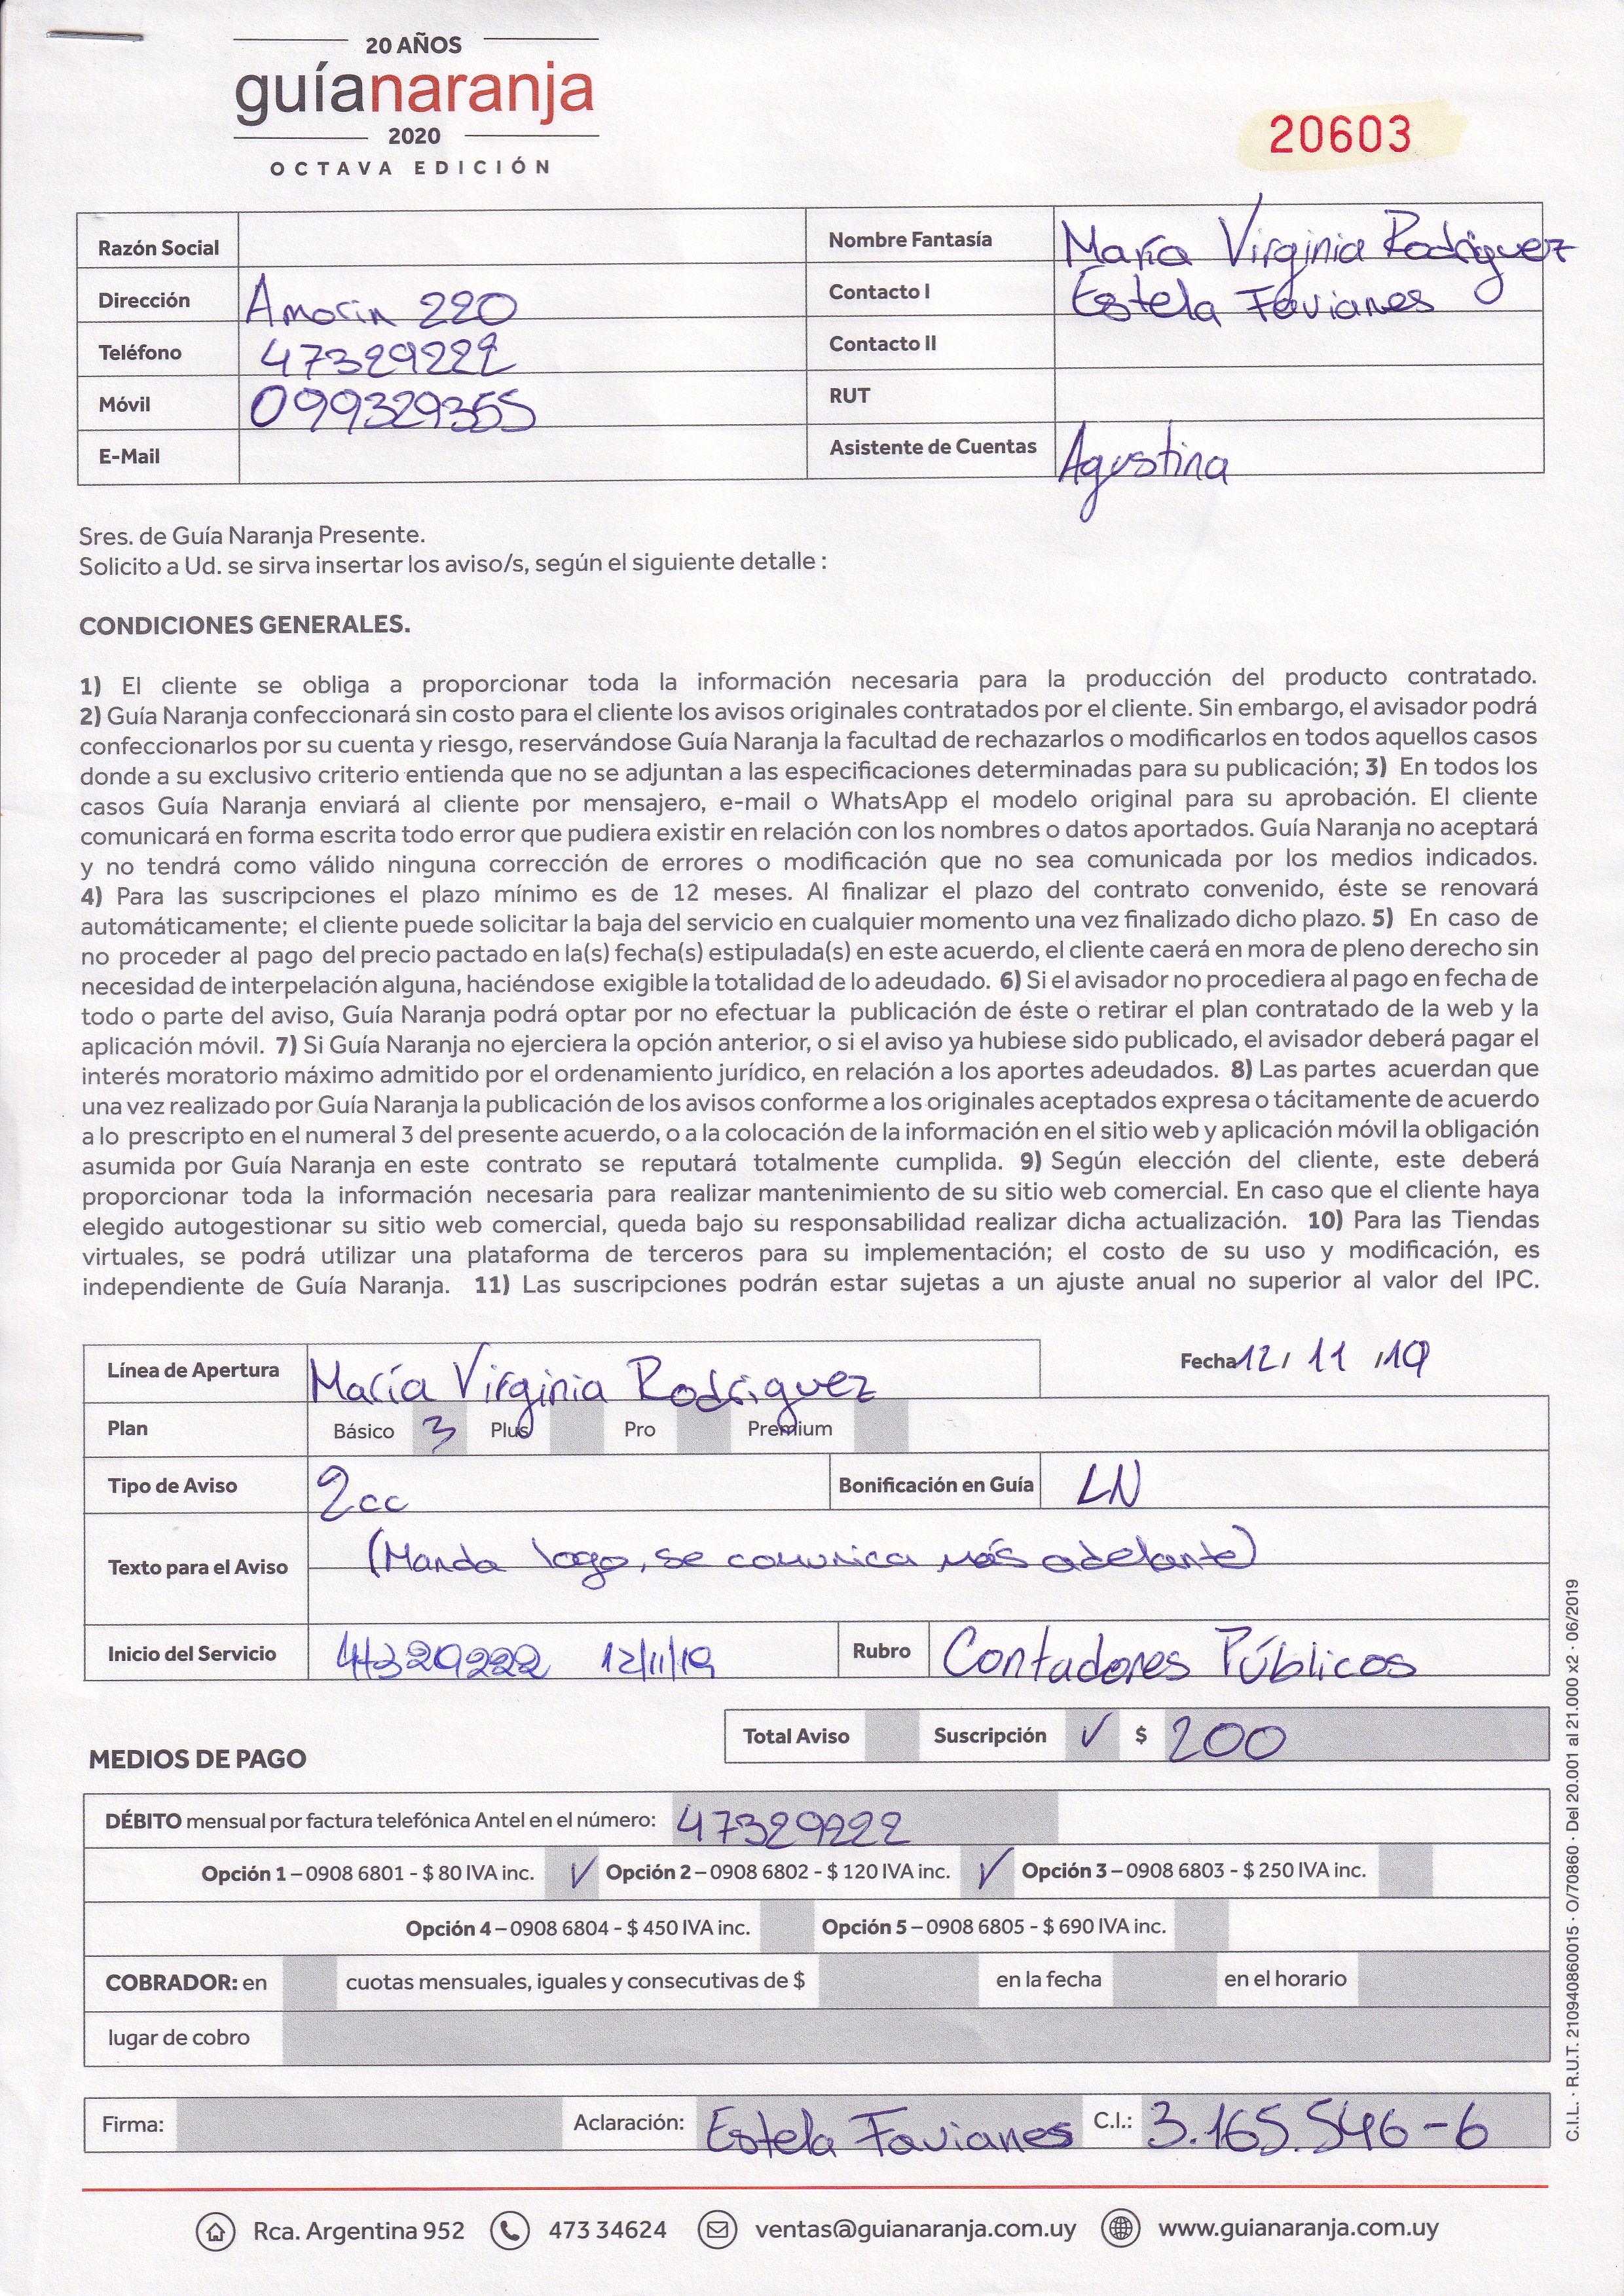 20 AÑOS
guíanaranja
2020
OCTAVA EDICIÓN
20603
Razón Social
Nombre Fantasía María Virginia Rodríguez
Dirección Amorin 220
Contacto I Estela Favianes
Teléfono 47329222
Contacto II
Móvil 099329355
RUT
E-Mail
Asistente de Cuentas Agustina
Sres. de Guía Naranja Presente.
Solicito a Ud. se sirva insertar los aviso/s, según el siguiente detalle :
CONDICIONES GENERALES.
1) El cliente se obliga a proporcionar toda la información necesaria para la producción del producto contratado.
2) Guía Naranja confeccionará sin costo para el cliente los avisos originales contratados por el cliente. Sin embargo, el avisador podrá
confeccionarlos por su cuenta y riesgo, reservándose Guía Naranja la facultad de rechazarlos o modificarlos en todos aquellos casos
donde a su exclusivo criterio entienda que no se adjuntan a las especificaciones determinadas para su publicación; 3) En todos los
casos Guía Naranja enviará al cliente por mensajero, e-mail o WhatsApp el modelo original para su aprobación. El cliente
comunicará en forma escrita todo error que pudiera existir en relación con los nombres o datos aportados. Guía Naranja no aceptará
y no tendrá como válido ninguna corrección de errores o modificación que no sea comunicada por los medios indicados.
4) Para las suscripciones el plazo mínimo es de 12 meses. Al finalizar el plazo del contrato convenido, éste se renovará
automáticamente; el cliente puede solicitar la baja del servicio en cualquier momento una vez finalizado dicho plazo. 5) En caso de
no proceder al pago del precio pactado en la(s) fecha(s) estipulada(s) en este acuerdo, el cliente caerá en mora de pleno derecho sin
necesidad de interpelación alguna, haciéndose exigible la totalidad de lo adeudado. 6) Si el avisador no procediera al pago en fecha de
todo o parte del aviso, Guía Naranja podrá optar por no efectuar la publicación de éste o retirar el plan contratado de la web y la
aplicación móvil. 7) Si Guía Naranja no ejerciera la opción anterior, o si el aviso ya hubiese sido publicado, el avisador deberá pagar el
interés moratorio máximo admitido por el ordenamiento jurídico, en relación a los aportes adeudados. 8) Las partes acuerdan que
una vez realizado por Guía Naranja la publicación de los avisos conforme a los originales aceptados expresa o tácitamente de acuerdo
a lo prescripto en el numeral 3 del presente acuerdo, o a la colocación de la información en el sitio web y aplicación móvil la obligación
asumida por Guía Naranja en este contrato se reputará totalmente cumplida. 9) Según elección del cliente, este deberá
proporcionar toda la información necesaria para realizar mantenimiento de su sitio web comercial. En caso que el cliente haya
elegido autogestionar su sitio web comercial, queda bajo su responsabilidad realizar dicha actualización. 10) Para las Tiendas
virtuales, se podrá utilizar una plataforma de terceros para su implementación; el costo de su uso y modificación, es
independiente de Guía Naranja. 11) Las suscripciones podrán estar sujetas a un ajuste anual no superior al valor del IPC.
Línea de Apertura María Virginia Rodriguez
Fecha 12/ 11 /19
Plan Básico 3 Plus Pro Premium
Tipo de Aviso 2cc Bonificación en Guía LN
Texto para el Aviso (Manda logo, se comunica más adelante)
Inicio del Servicio 47329222 12/11/19 Rubro Contadores Públicos
Total Aviso Suscripción ✓ $ 200
MEDIOS DE PAGO
DÉBITO mensual por factura telefónica Antel en el número: 47329222
Opción 1 – 0908 6801 - $ 80 IVA inc. ✓ Opción 2 – 0908 6802 - $ 120 IVA inc. ✓ Opción 3 – 0908 6803 - $ 250 IVA inc.
Opción 4 – 0908 6804 - $ 450 IVA inc. Opción 5 – 0908 6805 - $ 690 IVA inc.
COBRADOR: en cuotas mensuales, iguales y consecutivas de $ en la fecha en el horario
lugar de cobro
Firma: Aclaración: Estela Favianes C.I.: 3.165.546-6
Rca. Argentina 952 473 34624 ventas@guianaranja.com.uy www.guianaranja.com.uy
C.I.L. · R.U.T. 210940860015 · O/70860 · Del 20.001 al 21.000 x2 · 06/2019